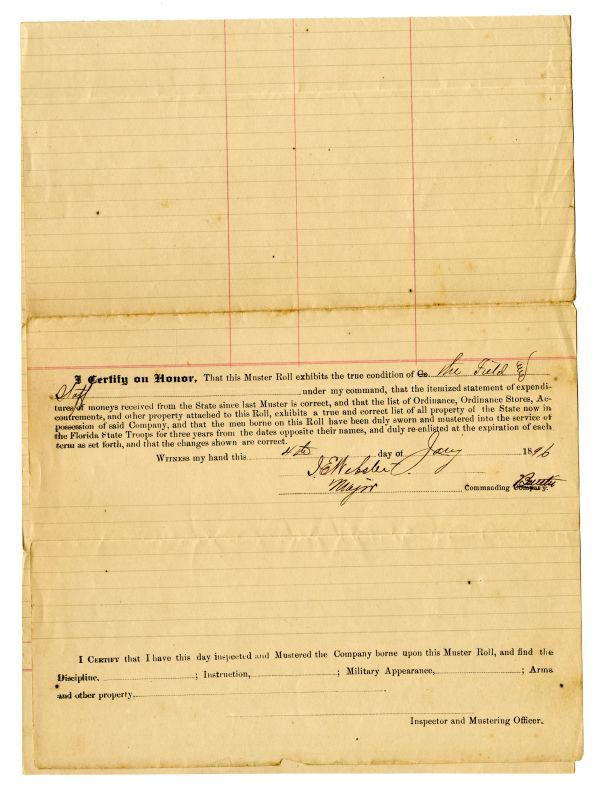 I Certify on Honor, That this Muster Roll exhibits the true condition of Co. the Field &
Staff under my command, that the itemized statement of expendi-
tures of moneys received from the State since last Muster is correct, and that the list of Ordinance, Ordinance Stores, Ac-
coutrements, and other property attached to this Roll, exhibits a true and correct list of all property of the State now in
possession of said Company, and that the men borne on this Roll have been duly sworn and mustered into the service of
the Florida State Troops for three years from the dates opposite their names, and duly re-enlisted at the expiration of each
term as set forth, and that the changes shown are correct.
WITNESS my hand this 4th day of Jany 1896
Webster
Major Commanding Company.
I CERTIFY that I have this day inspected and Mustered the Company borne upon this Muster Roll, and find the
Discipline, ; Instruction, ; Military Appearance, ; Arms
and other property,
Inspector and Mustering Officer.